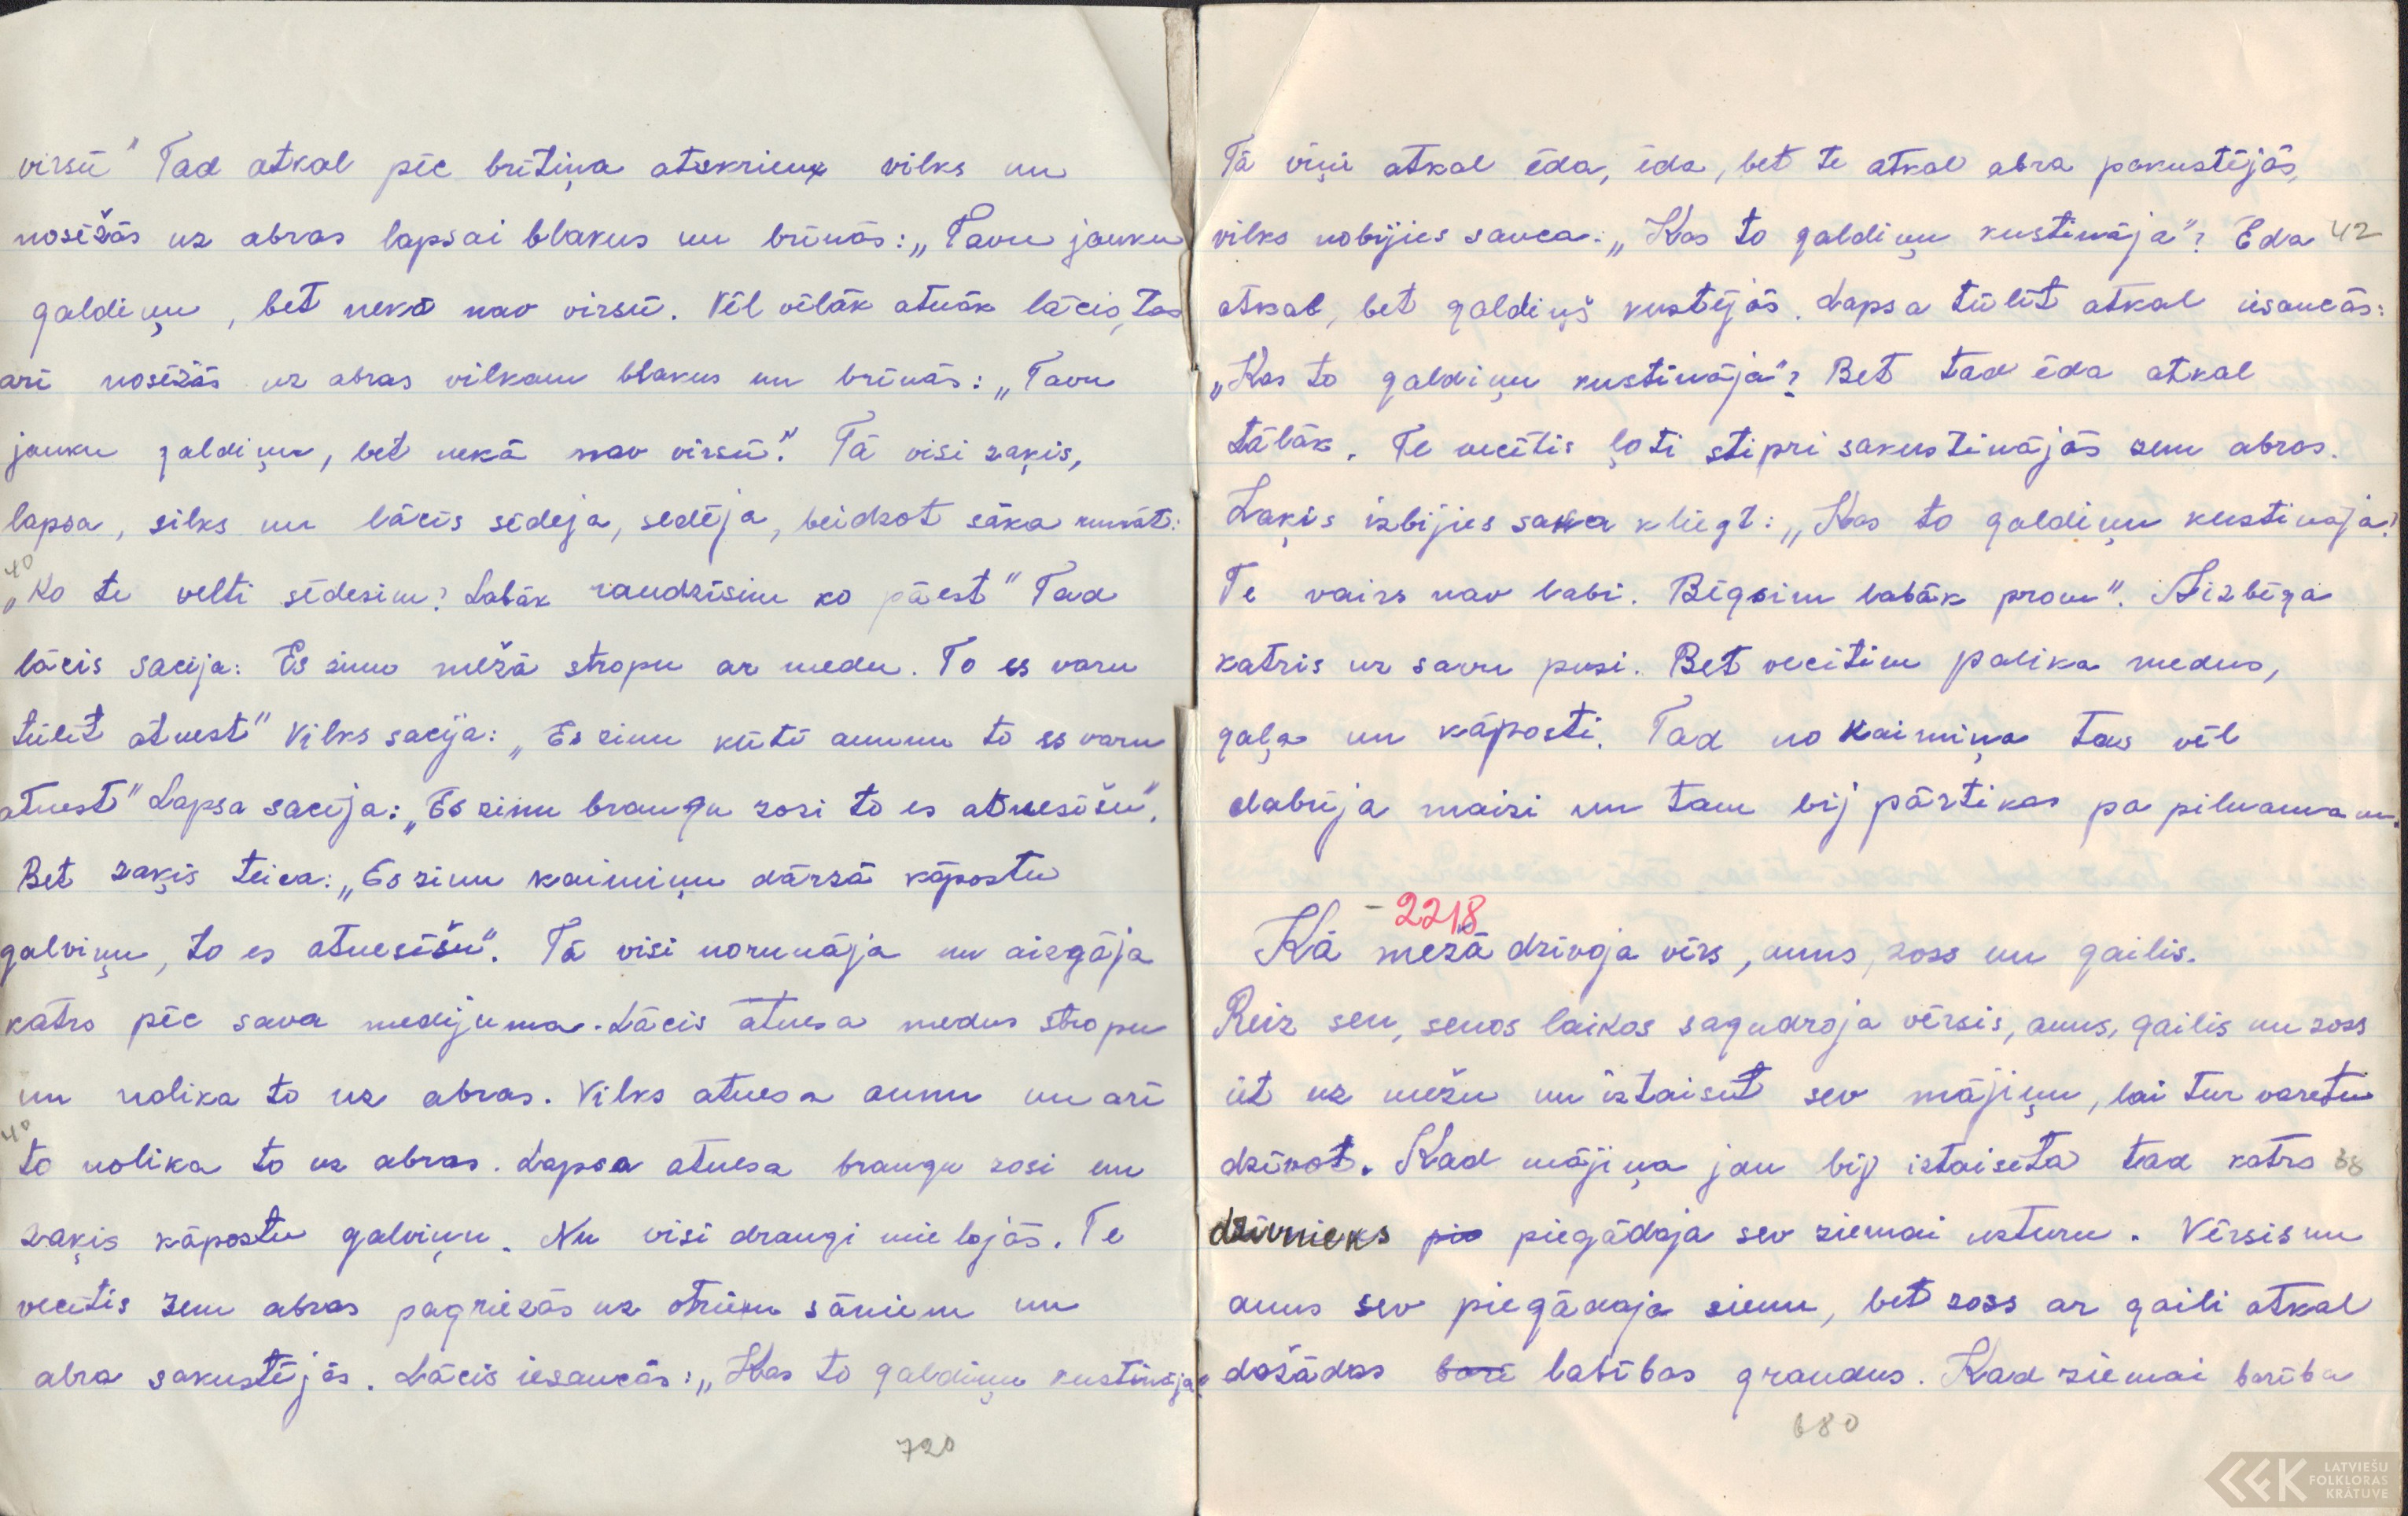 virsū" Tad atkal pēc brītiņa atskrien vilks un
nosēžās uz abras lapsai blakus un brīnās: „Tavu jauku
galdiņu, bet nekā nav virsū. Vēl vēlāk atnāk lācis, tas
arī nosēžās uz abras vilkam blakus un brīnās: „Tavu
jauku galdiņu, bet nekā nav virsū." Tā visi zaķis,
lapsa, silks un lācis sēdēja, sedēja, beidzot sāka runāt:
40
„Ko te velti sēdesim? Labāk raudzīsim ko pāest" Tad
lācis sacija: Es zinu mežā stropu ar medu. To es varu
tūlīt atnest" Vilks sacīja: „Es zinu kūtī aunu to es varu
atnest" Lapsa sacīja: „Es zinu brangu zosi to es atnesīšu".
Bet zaķis teica: „Es zinu kaimiņu dārzā kāpostu
galviņu, to es atnesīšu". Tā visi norunāja un aizgāja
katrs pēc sava medijuma. Lācis atnesa medus stropu
un nolika to uz abras. Vilks atnesa aunu un arī
40
to nolika to uz abras. Lapsa atnesa brangu zosi un
zaķis kāpostu galviņu. Nu visi draugi mielojās. Te
vecītis zem abras pagriezās uz otriem sāniem un
abra sakustējās. Lācis iesaucās: „Kas to galdiņu kustināja"
720
Tā viņi atkal ēda, ēda, bet te atkal abra pakustējās,
vilks nobijies sauca: „Kas to galdiņu kustināja"? Ēda 42
atkal, bet galdiņš kustējās. Lapsa tūlīt atkal iesaucās:
„Kas to galdiņu kustināja"? Bet tad ēda atkal
tālāk. Te vecītis ļoti stipri sakustinājās zem abras.
Zaķis izbijies saka kliegt: „Kas to galdiņu kustinaja?
Te vairs nav labi. Bēgsim labāk prom". Aizbēga
katris uz savu pusi. Bet vecītim palika medus,
gaļa un kāposti. Tad no kaimiņa tas vēl
dabūja maizi un tam bij pārtikas pa pilnamam.
-2218
Kā mezā dzīvoja vērs, auns, zoss un gailis.
Reiz sen, senos laikos sagudroja vērsis, auns, gailis un zoss
iit uz mežu un iztaisīt sev mājiņu, lai tur varetu
dzīvot. Kad mājiņa jau bij iztaisīta tad katrs 38
dzīvnieks pie piegādāja sev ziemai uzturu. Vērsis un
auns sev piegādaja sienu, bet zoss ar gaili atkal
dažādas bari labības graudus. Kad ziemai barība
680
LATVIEŠU
FOLKLORAS
KRĀTUVE